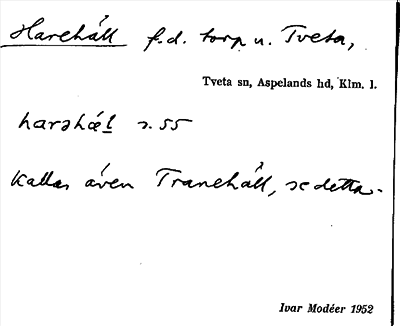 Harehäll f.d. torp u. Tveta,
Tveta sn, Aspelands hd, Klm. l.
harəhæ̀l s. 55
Kallas även Tranehäll, se detta.
Ivar Modéer 1952